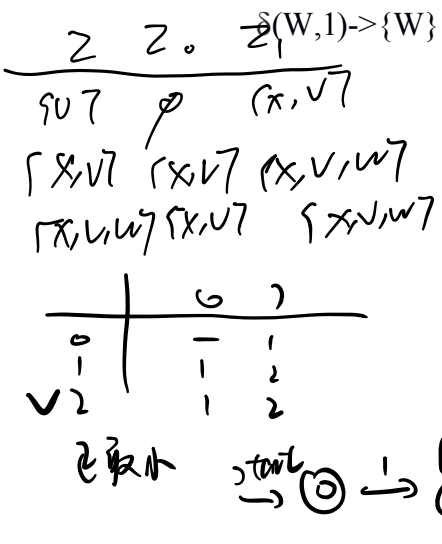 δ(W,1)->{W}
I I₀ I₁
{U} ∅ {X,V}
{X,V} {X,V} {X,V,W}
{X,V,W} {X,V} {X,V,W}
0 1
0 — 1
1 1 2
✓2 1 2
已最小 start 0 1